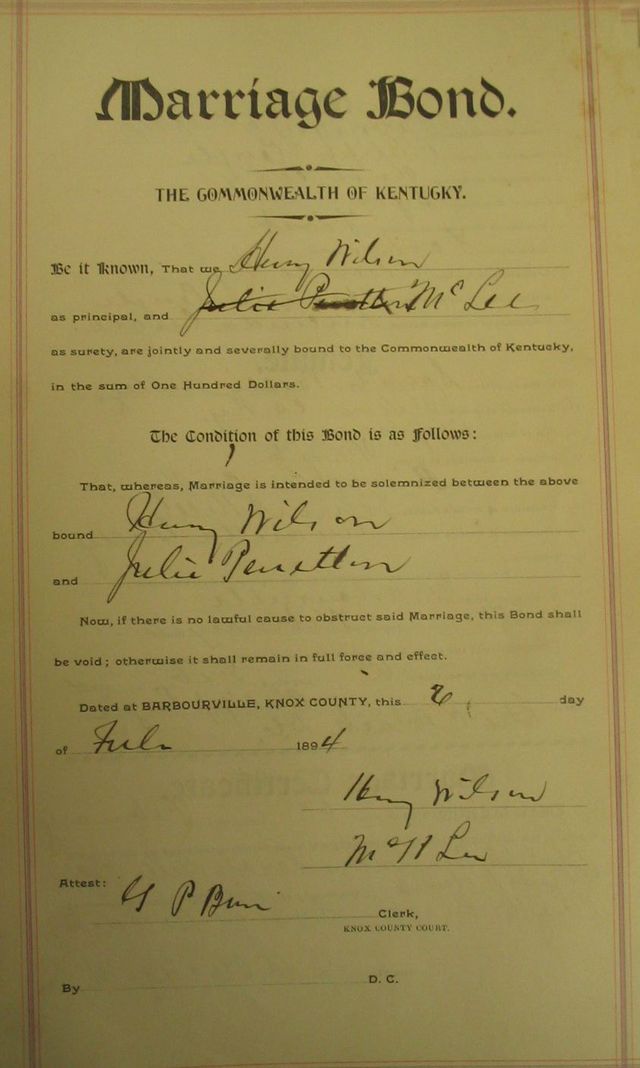 Marriage Bond.
THE COMMONWEALTH OF KENTUCKY.
Be it Known, That we Henry Wilson
as principal, and Mc Lee
as surety, are jointly and severally bound to the Commonwealth of Kentucky,
in the sum of One Hundred Dollars.
The Condition of this Bond is as Follows:
That, whereas, Marriage is intended to be solemnized between the above
bound Henry Wilson
and Julie
Now, if there is no lawful cause to obstruct said Marriage, this Bond shall
be void; otherwise it shall remain in full force and effect.
Dated at BARBOURVILLE, KNOX COUNTY, this day
of 1894
Henry Wilson
Lee
Attest: Clerk,
KNOX COUNTY COURT.
By D. C.